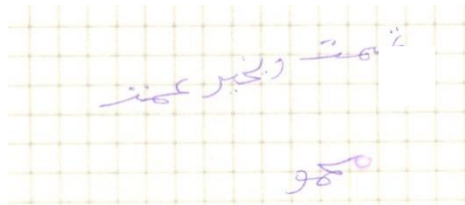 تمت وبخير عمت
محمو